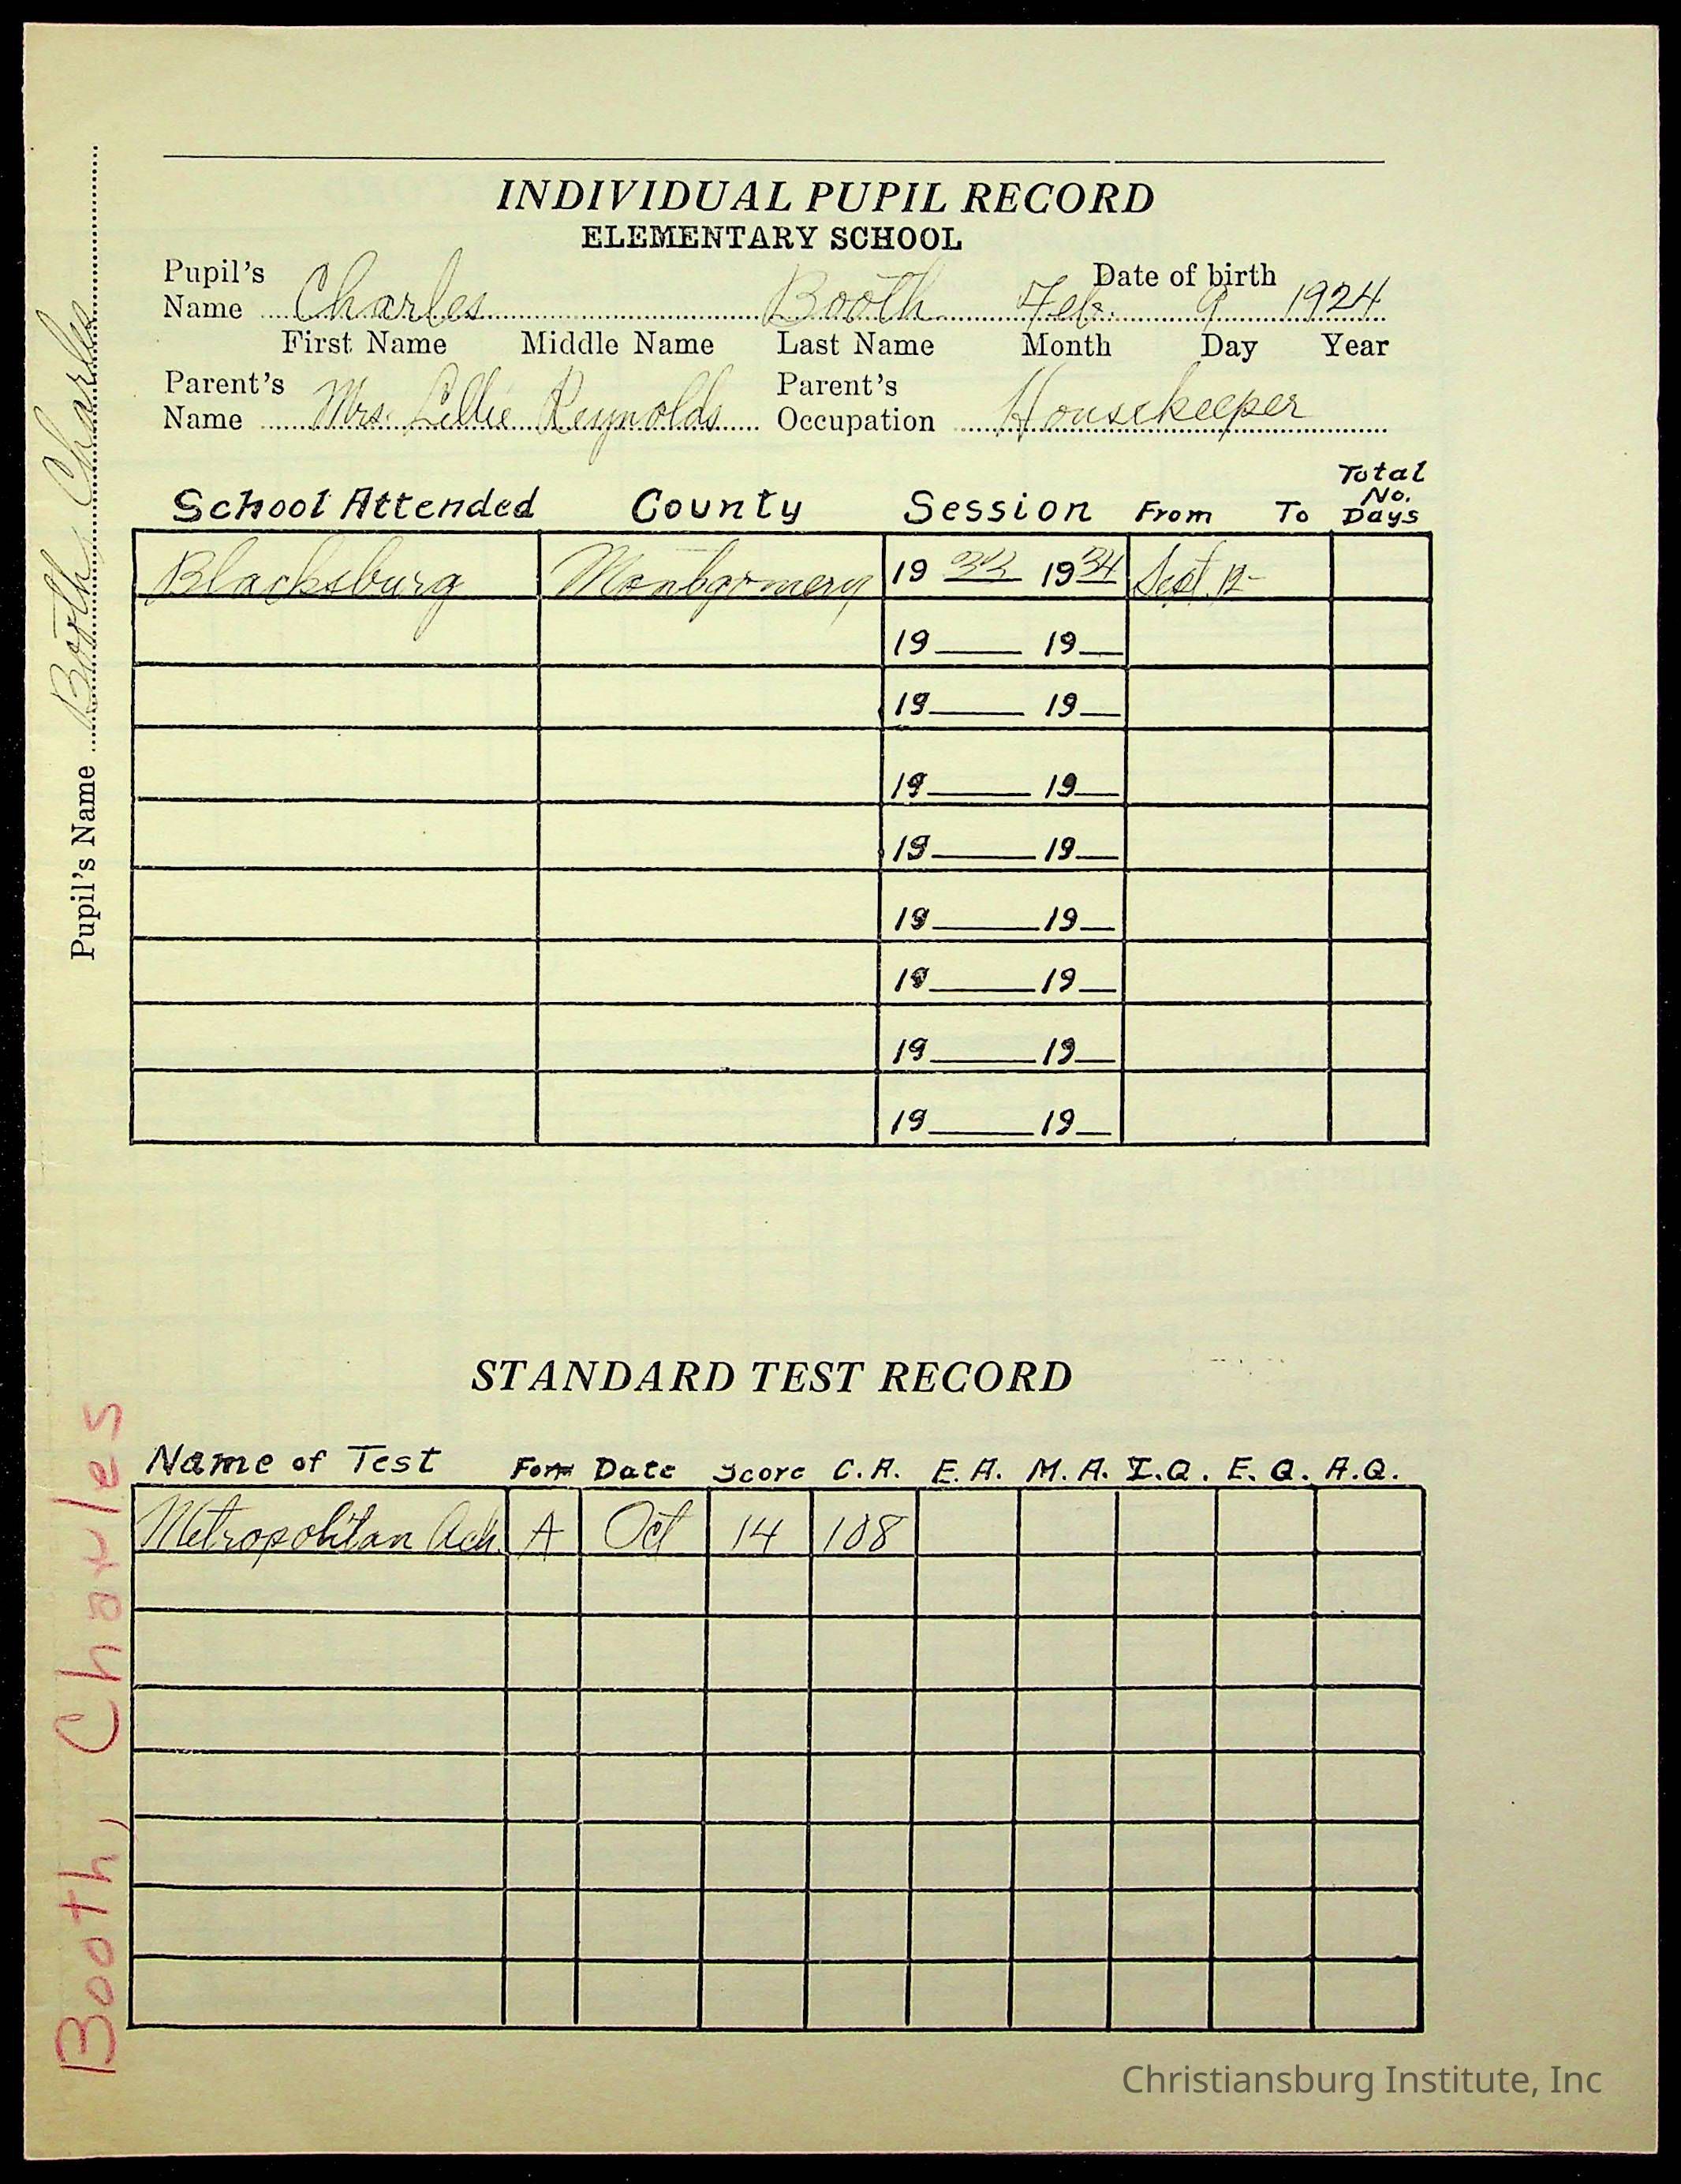 INDIVIDUAL PUPIL RECORD
ELEMENTARY SCHOOL
Pupil's Date of birth
Name Charles Booth Feb. 9 1924
First Name Middle Name Last Name Month Day Year
Parent's Parent's
Name Mrs. Lillie Reynolds Occupation Housekeeper
School Attended County Session From To Total No. Days
Blacksburg Montgomery 19 33 1934 Sept. 12-
19 19
19 19
19 19
19 19
19 19
19 19
19 19
19 19
Pupil's Name Booth, Charles
STANDARD TEST RECORD
Name of Test Form Date Score C.A. E.A. M.A. I.Q. E.Q. A.Q.
Metropolitan Ach. A Oct 14 108
Booth, Charles
Christiansburg Institute, Inc